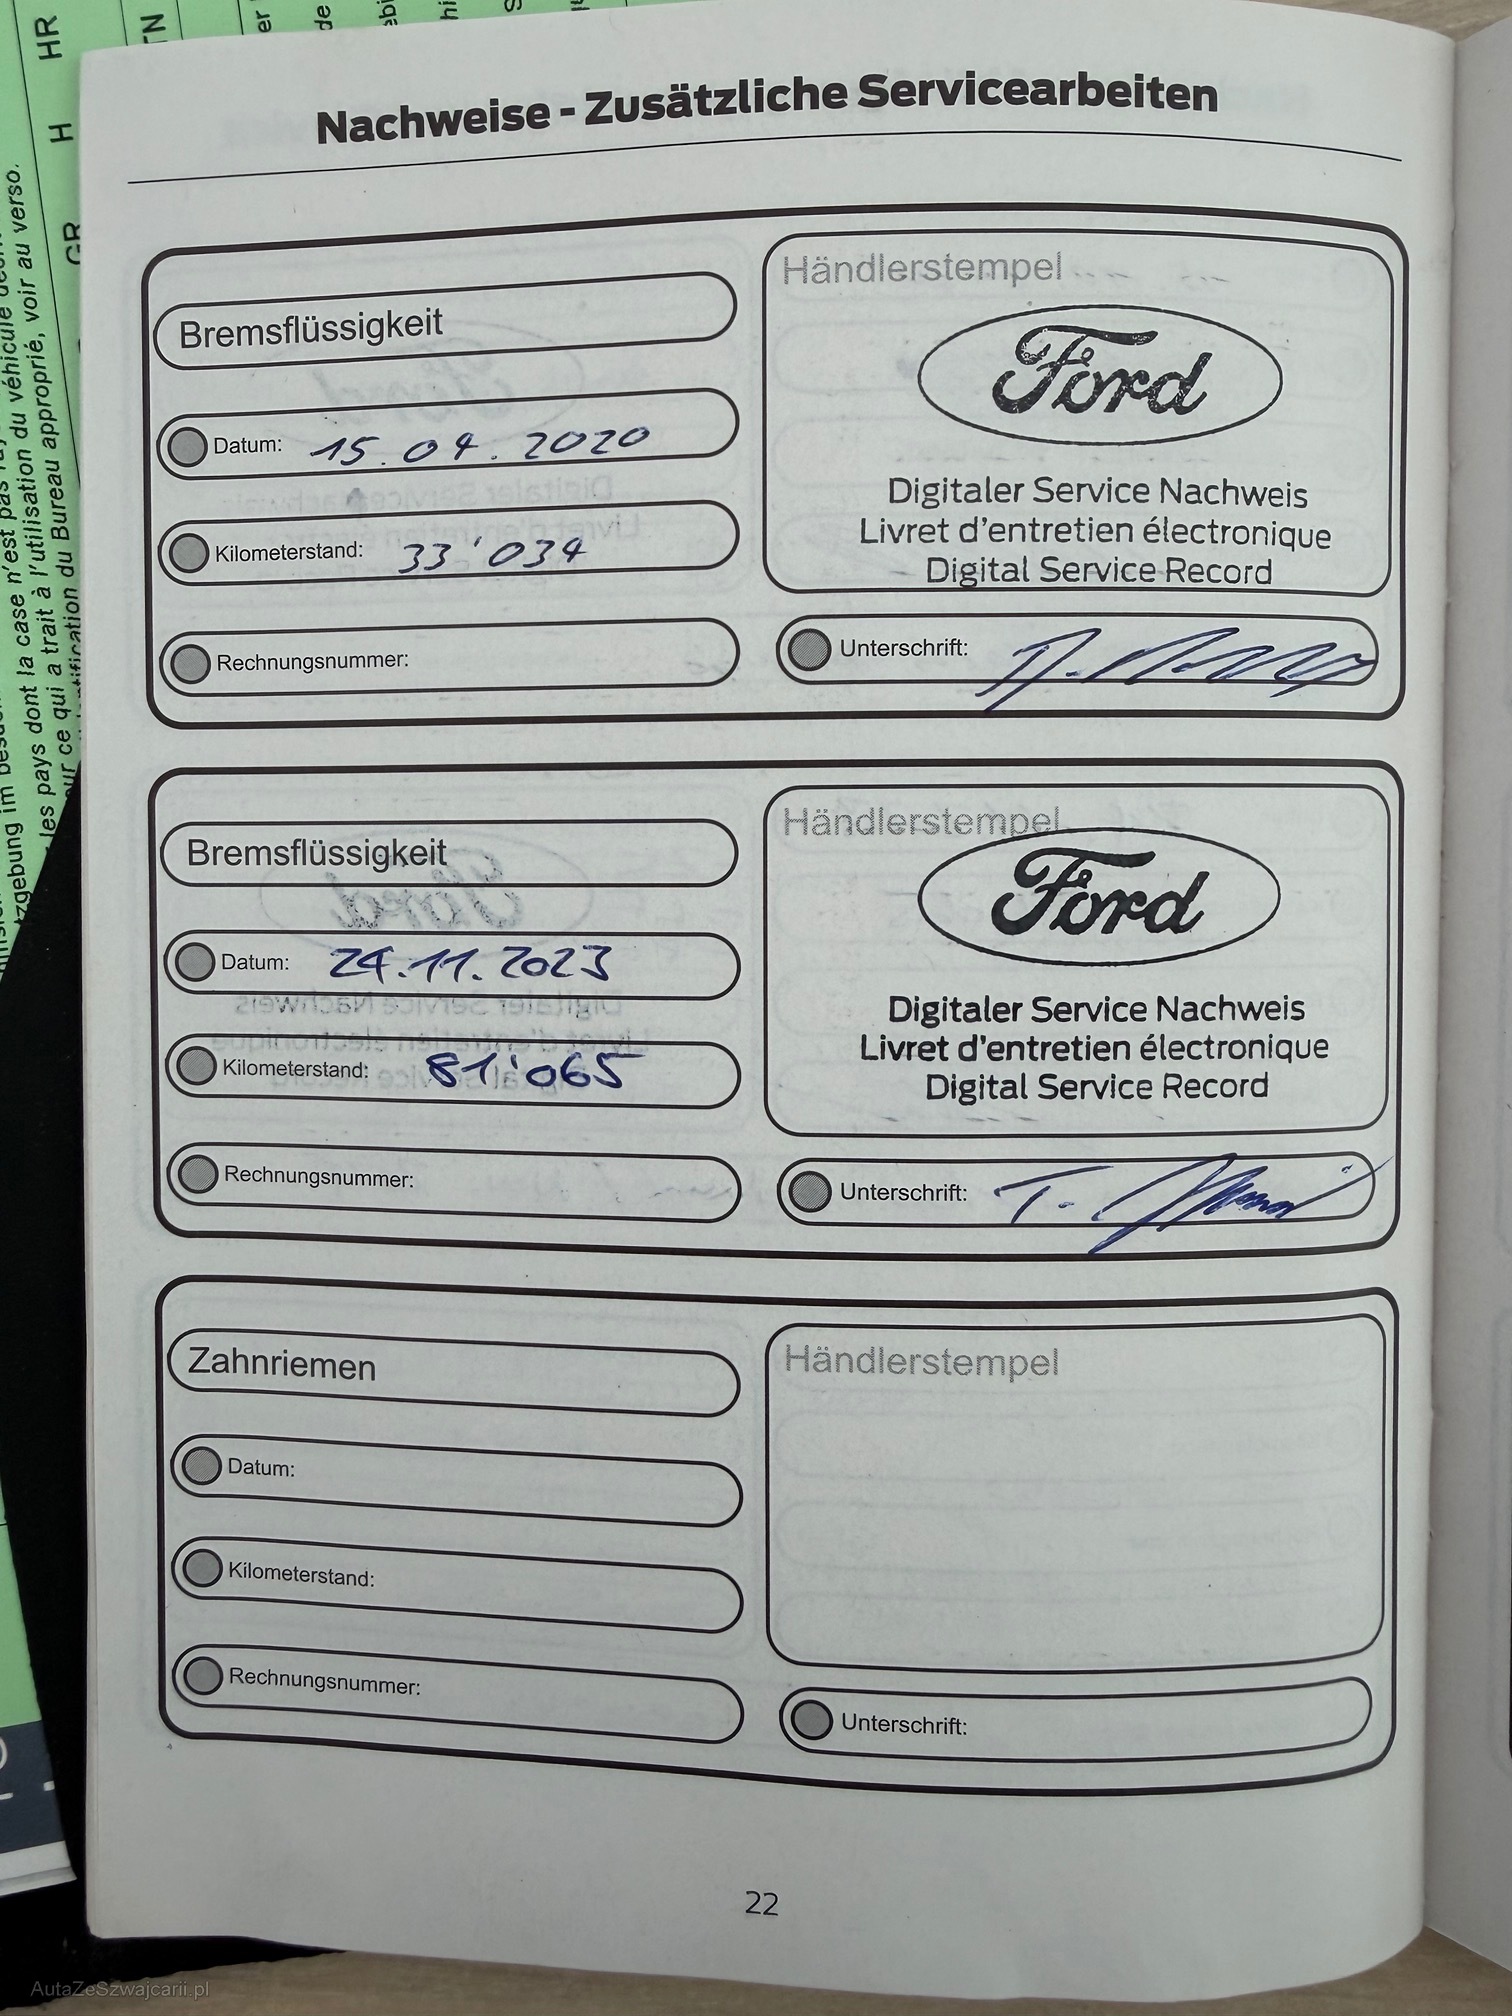 Nachweise - Zusätzliche Servicearbeiten
Bremsflüssigkeit
Datum: 15.04.2020
Kilometerstand: 33'034
Rechnungsnummer:
Händlerstempel
Ford
Digitaler Service Nachweis
Livret d'entretien électronique
Digital Service Record
Unterschrift:
Bremsflüssigkeit
Datum: 24.11.2023
Kilometerstand: 81'065
Rechnungsnummer:
Händlerstempel
Ford
Digitaler Service Nachweis
Livret d'entretien électronique
Digital Service Record
Unterschrift: T.
Zahnriemen
Datum:
Kilometerstand:
Rechnungsnummer:
Händlerstempel
Unterschrift:
22
HR
H
GR
les pays dont la case n'est pas
ce qui a trait à l'utilisation du véhicule
du Bureau approprié, voir au verso.
AutaZeSzwajcarii.pl